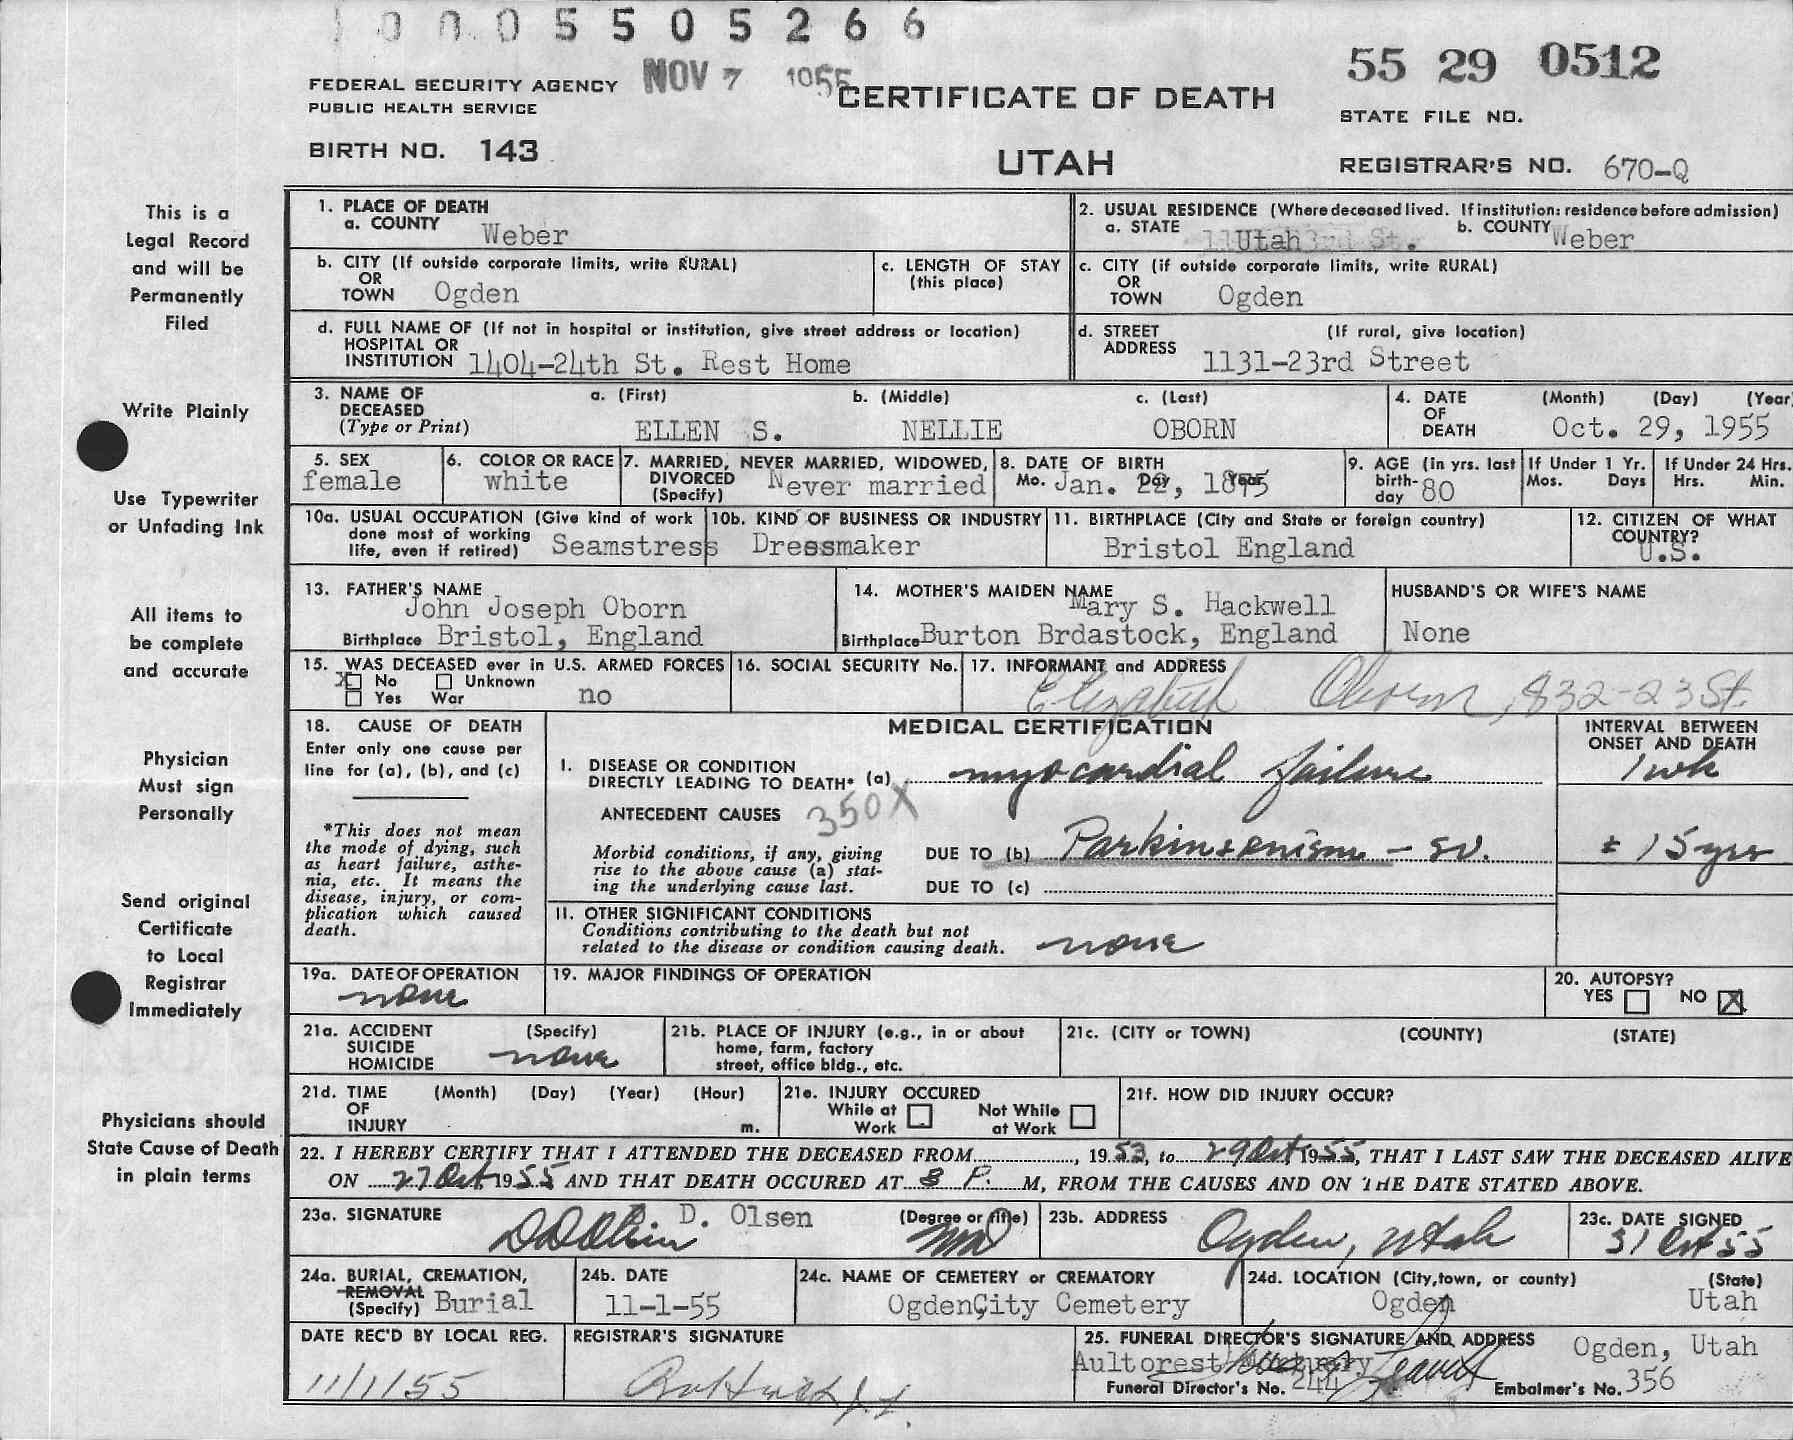 0 0 0 5 5 0 5 2 6 6
NOV 7 1955
55 29 0512
FEDERAL SECURITY AGENCY
PUBLIC HEALTH SERVICE
CERTIFICATE OF DEATH
STATE FILE NO.
BIRTH NO. 143
UTAH
REGISTRAR'S NO. 670-Q
This is a
Legal Record
and will be
Permanently
Filed
Write Plainly
Use Typewriter
or Unfading Ink
All items to
be complete
and accurate
Physician
Must sign
Personally
Send original
Certificate
to Local
Registrar
Immediately
Physicians should
State Cause of Death
in plain terms
1. PLACE OF DEATH
a. COUNTY Weber
2. USUAL RESIDENCE (Where deceased lived. If institution: residence before admission)
a. STATE Utah b. COUNTY Weber
b. CITY (If outside corporate limits, write RURAL)
OR
TOWN Ogden
c. LENGTH OF STAY
(this place)
c. CITY (if outside corporate limits, write RURAL)
OR
TOWN Ogden
d. FULL NAME OF (If not in hospital or institution, give street address or location)
HOSPITAL OR
INSTITUTION 1404-24th St. Rest Home
d. STREET (If rural, give location)
ADDRESS 1131-23rd Street
3. NAME OF DECEASED (Type or Print)
a. (First) b. (Middle) c. (Last)
ELLEN S. NELLIE OBORN
4. DATE OF DEATH (Month) (Day) (Year)
Oct. 29, 1955
5. SEX
female
6. COLOR OR RACE
white
7. MARRIED, NEVER MARRIED, WIDOWED,
DIVORCED (Specify) Never married
8. DATE OF BIRTH
Mo. Day Year
Jan. 22, 1875
9. AGE (in yrs. last birth-day 80
If Under 1 Yr.
Mos. Days
If Under 24 Hrs.
Hrs. Min.
10a. USUAL OCCUPATION (Give kind of work
done most of working
life, even if retired) Seamstress
10b. KIND OF BUSINESS OR INDUSTRY
Dressmaker
11. BIRTHPLACE (City and State or foreign country)
Bristol England
12. CITIZEN OF WHAT
COUNTRY?
U.S.
13. FATHER'S NAME
John Joseph Oborn
Birthplace Bristol, England
14. MOTHER'S MAIDEN NAME
Mary S. Hackwell
Birthplace Burton Brdastock, England
HUSBAND'S OR WIFE'S NAME
None
15. WAS DECEASED ever in U.S. ARMED FORCES
X No Unknown
Yes War no
16. SOCIAL SECURITY No.
17. INFORMANT and ADDRESS
Elizabeth Oborn, 832-23 St.
18. CAUSE OF DEATH
Enter only one cause per
line for (a), (b), and (c)
*This does not mean
the mode of dying, such
as heart failure, asthe-
nia, etc. It means the
disease, injury, or com-
plication which caused
death.
MEDICAL CERTIFICATION
INTERVAL BETWEEN
ONSET AND DEATH
I. DISEASE OR CONDITION
DIRECTLY LEADING TO DEATH* (a) myocardial failure 1 wk
ANTECEDENT CAUSES 350X
Morbid conditions, if any, giving
rise to the above cause (a) stat-
ing the underlying cause last.
DUE TO (b) Parkinsenism - sv. ± 15 yrs
DUE TO (c)
II. OTHER SIGNIFICANT CONDITIONS
Conditions contributing to the death but not
related to the disease or condition causing death. none
19a. DATE OF OPERATION
none
19. MAJOR FINDINGS OF OPERATION
20. AUTOPSY?
YES NO X
21a. ACCIDENT (Specify)
SUICIDE
HOMICIDE none
21b. PLACE OF INJURY (e.g., in or about
home, farm, factory
street, office bldg., etc.
21c. (CITY or TOWN) (COUNTY) (STATE)
21d. TIME (Month) (Day) (Year) (Hour)
OF
INJURY m.
21e. INJURY OCCURED
While at Work Not While at Work
21f. HOW DID INJURY OCCUR?
22. I HEREBY CERTIFY THAT I ATTENDED THE DECEASED FROM , 1953, to 29 Oct, 1955, THAT I LAST SAW THE DECEASED ALIVE
ON 27 Oct, 1955 AND THAT DEATH OCCURED AT 8 P. M, FROM THE CAUSES AND ON THE DATE STATED ABOVE.
23a. SIGNATURE D. Olsen (Degree or title) MD
23b. ADDRESS Ogden, Utah
23c. DATE SIGNED
31 Oct 55
24a. BURIAL, CREMATION,
REMOVAL
(Specify) Burial
24b. DATE
11-1-55
24c. NAME OF CEMETERY or CREMATORY
Ogden City Cemetery
24d. LOCATION (City, town, or county) (State)
Ogden Utah
DATE REC'D BY LOCAL REG.
11/1/55
REGISTRAR'S SIGNATURE
25. FUNERAL DIRECTOR'S SIGNATURE AND ADDRESS
Aultorest Mortuary Ogden, Utah
Funeral Director's No. 244 Embalmer's No. 356